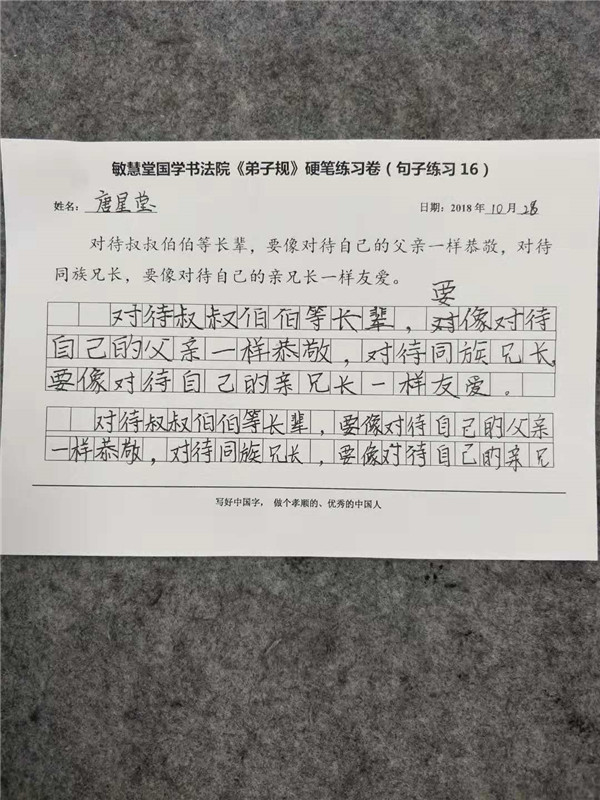 敏慧堂国学书法院《弟子规》硬笔练习卷（句子练习16）
姓名：唐星堂 日期：2018年10月28
对待叔叔伯伯等长辈，要像对待自己的父亲一样恭敬，对待
同族兄长，要像对待自己的亲兄长一样友爱。
要
对待叔叔伯伯等长辈，对像对待
自己的父亲一样恭敬，对待同族兄长，
要像对待自己的亲兄长一样友爱。
对待叔叔伯伯等长辈，要像对待自己的父亲
一样恭敬，对待同族兄长，要像对待自己的亲兄
写好中国字，做个孝顺的、优秀的中国人